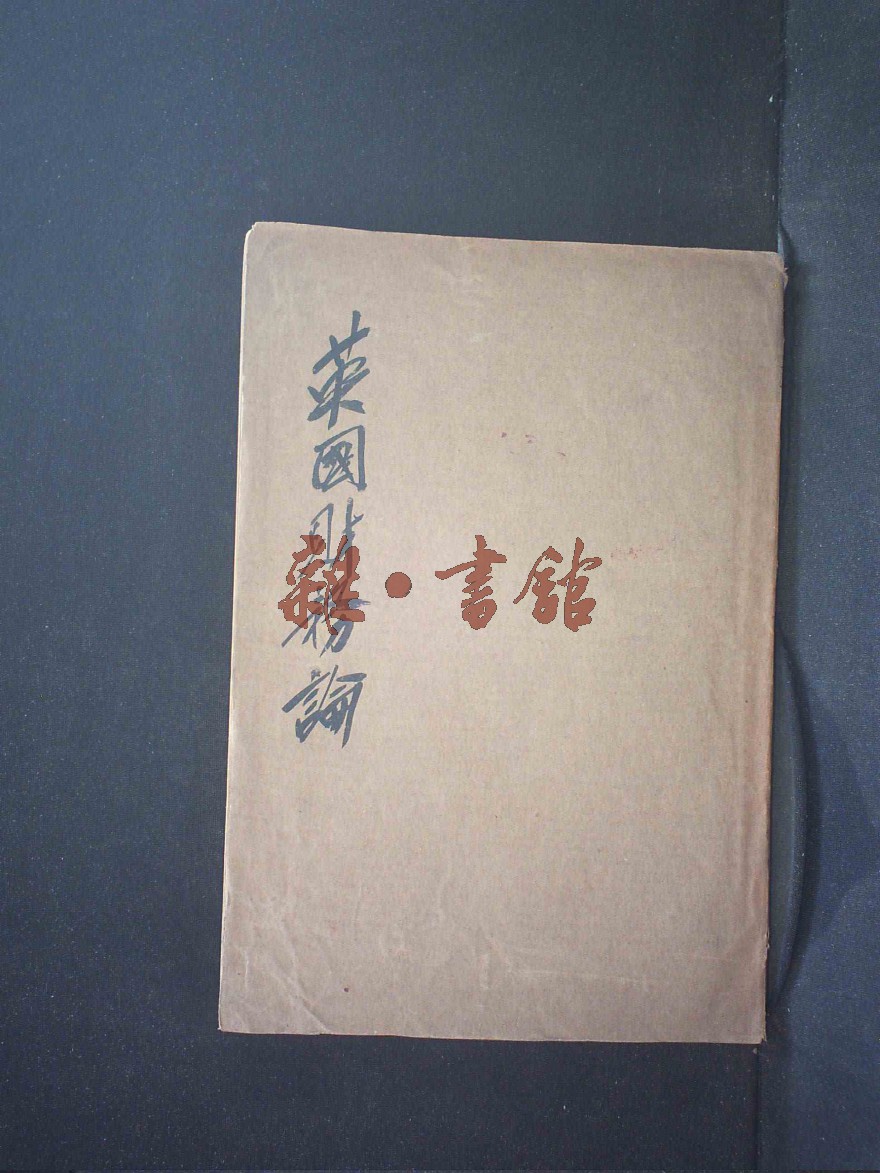 英國財務論
雜·書館